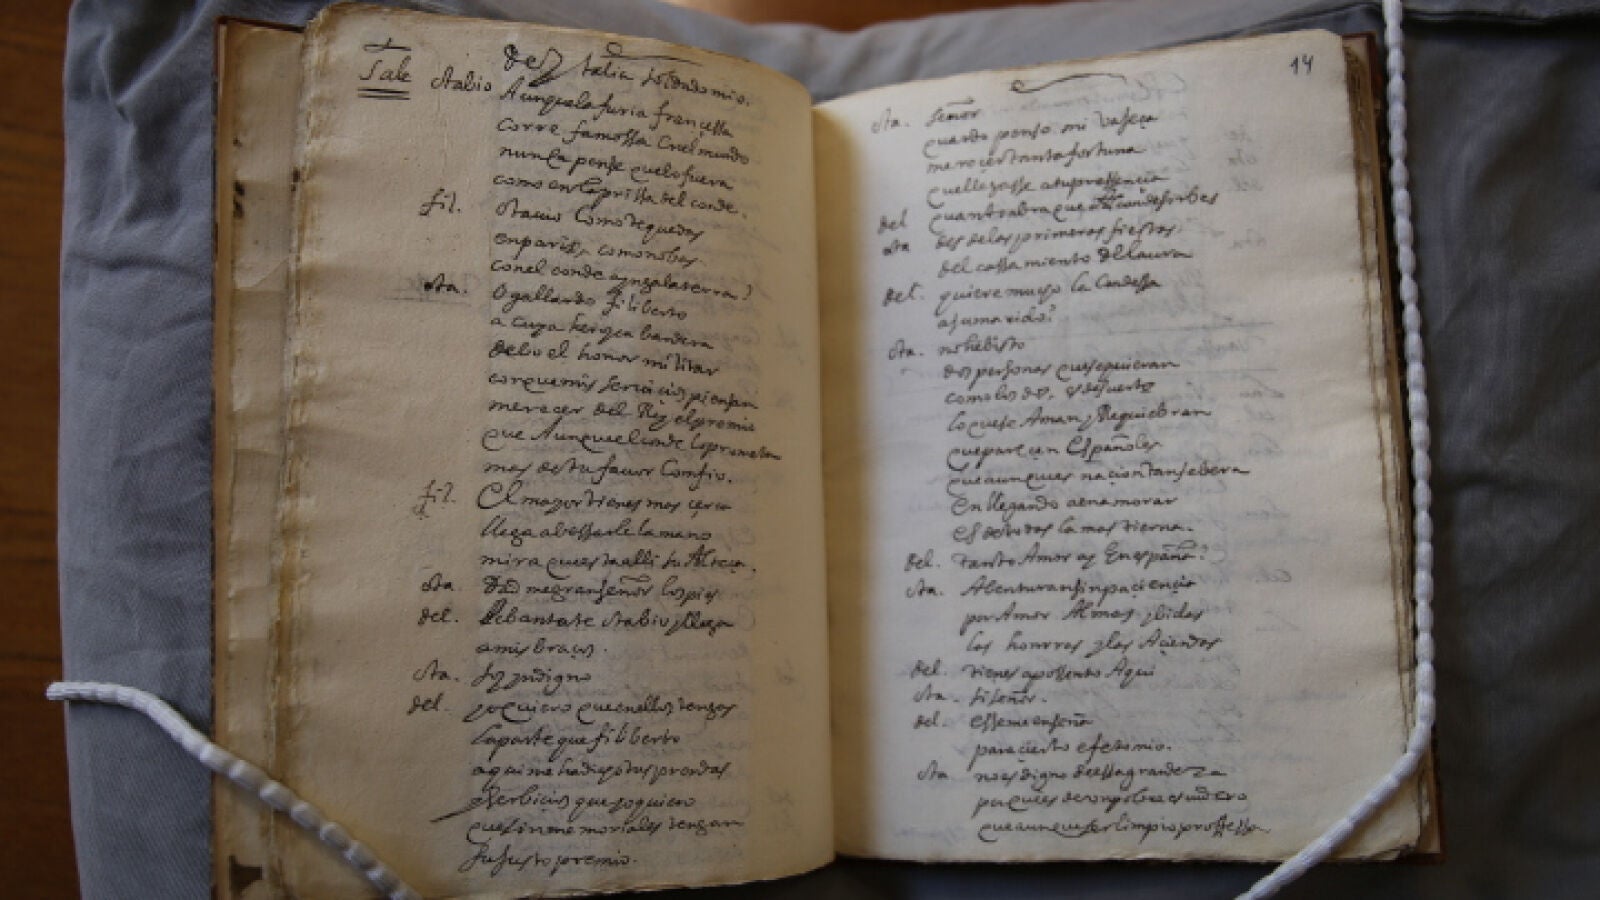 Sale
de Italia soldado mio.
Otabio Aunque la furia françessa
corre famossa en el mundo
nunca pense que lo fuera
como en la prissa del conde.
fil. Otavio como te quedas
en paris, como no bas
con el conde a yngalaterra?
Ota. O gallardo filiberto
a cuya heroyca bandera
debo el honor militar
con que mis serbicios piensan
mereçer del Rey el premio
que Aunque el conde lo prometan
mas de tu favor Confio.
fil. El mayor tienes mas çerca
llega a bessarle la mano
mira que esta alli su Alteça.
Ota. Dadme gran señor los pies
del. Lebantate Otabio y llega
a mis braços.
Ota. soy yndigno
del. yo quiero que en ellos tengas
la parte que filiberto
aqui me ha dicho tus prendas
serbicios que yo quiero
que sin memoriales tengan
su justo premio.
14
Ota. Señor
quando penso mi bajeça
mereçer tanta fortuna
que llegasse a tu pressençia
del quanto abra que al conde serbes
Ota desde las primeras fiestas
del cassamiento de laura
del. quiere mucho la Condessa
a su marido?
Ota. no he bisto
dos personas que se quieran
como los dos, y es de suerte
lo que se Aman y Requiebran
que pareçen Españoles
que aunque es naçion tan sebera
en llegando a enamorar
es de todas la mas tierna.
del. tanto Amor ay en españa?
Ota. Abenturan sin paçiençia
por Amor Almas y bidas
las honrras y las Açiendas
del. tienes apossento Aqui
Ota. si señor.
del. esse me enseña
para çierto efeto mio.
Ota no es digno de essa grandeza
porque es de un pobre escudero
que aunque ser limpio professa.